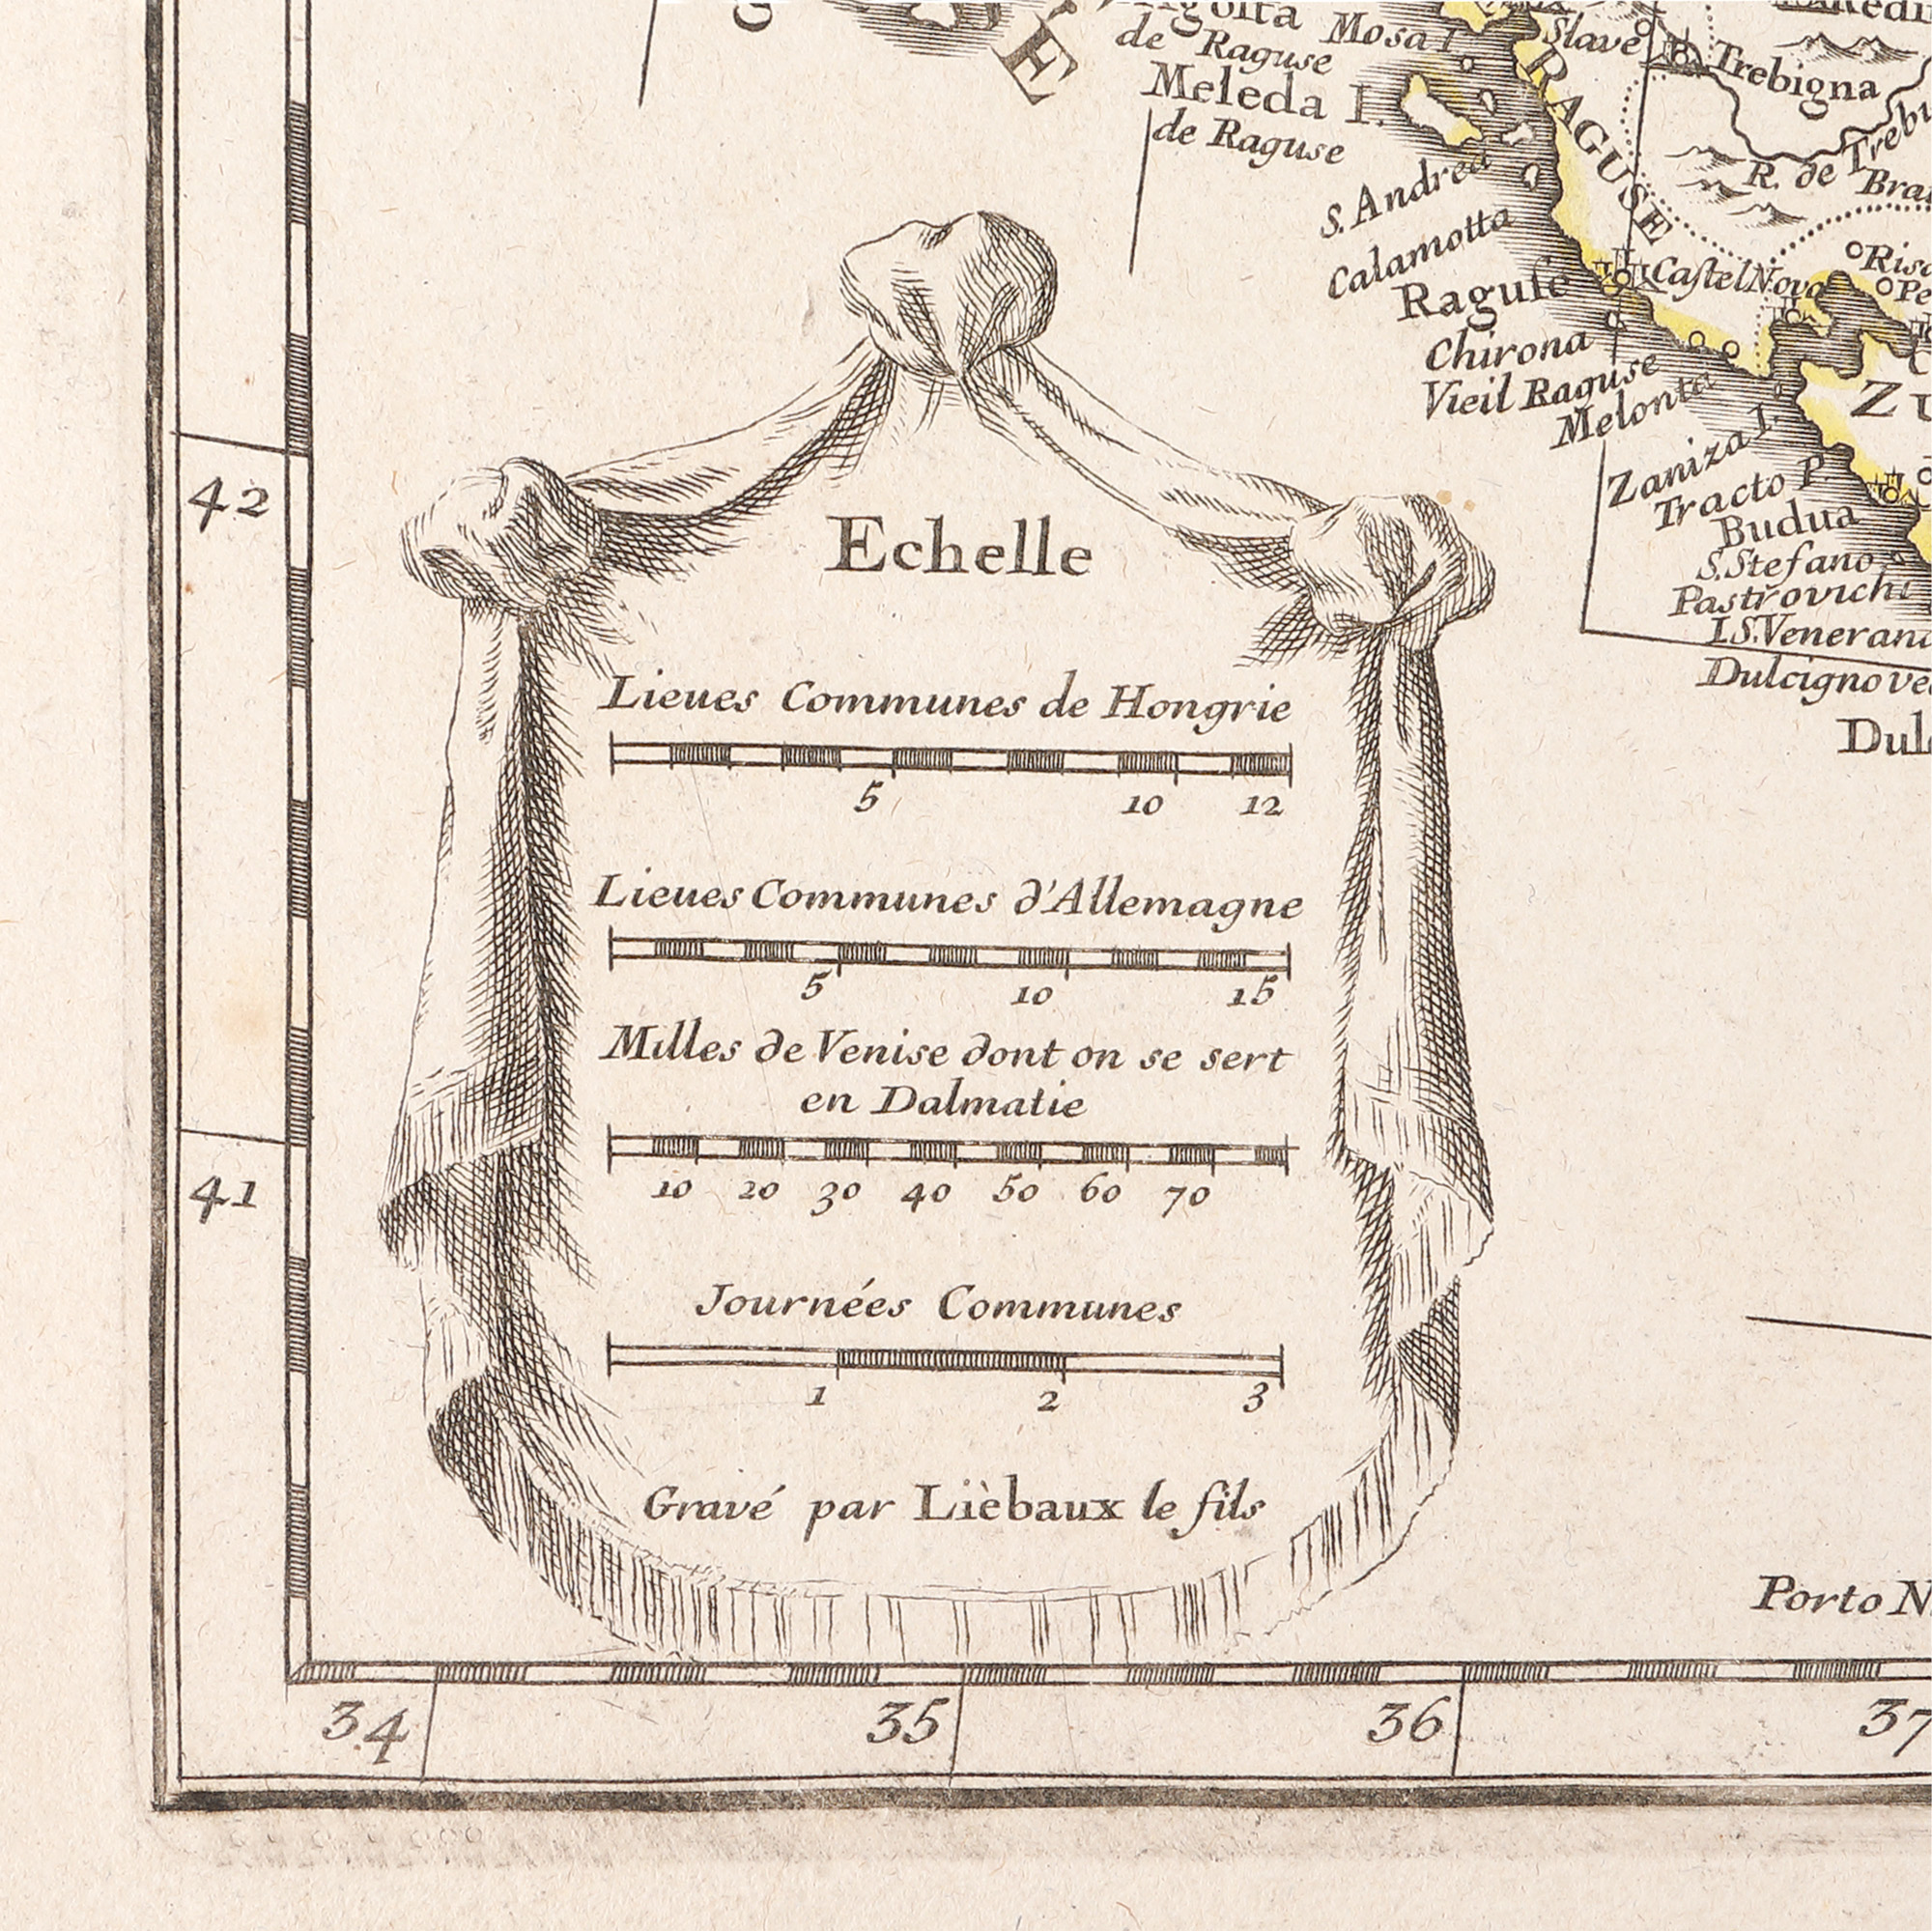 É
de Raguse
Mosa I.
Meleda I.
de Raguse
S. Andrea
Calamotta
Raguse
Chirona
Vieil Raguse
Melonta
Zaniza I.
Tracto P.
Budua
S. Stefano
Pastrovichi
I S. Veneran
Dulcigno ve
Dul
Slave
Trebigna
RAGUSE
R. de Trebi
Bra
Castel Novo
Ris
Pe
Z U
Echelle
Lieues Communes de Hongrie
5 10 12
Lieues Communes d'Allemagne
5 10 15
Milles de Venise dont on se sert
en Dalmatie
10 20 30 40 50 60 70
Journées Communes
1 2 3
Gravé par Lièbaux le fils
Porto N
42
41
34 35 36 37